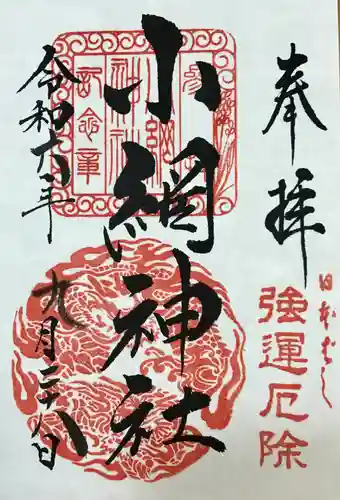 奉拝
日本ばし
強運厄除
小網神社
令和六年
九月二十八日